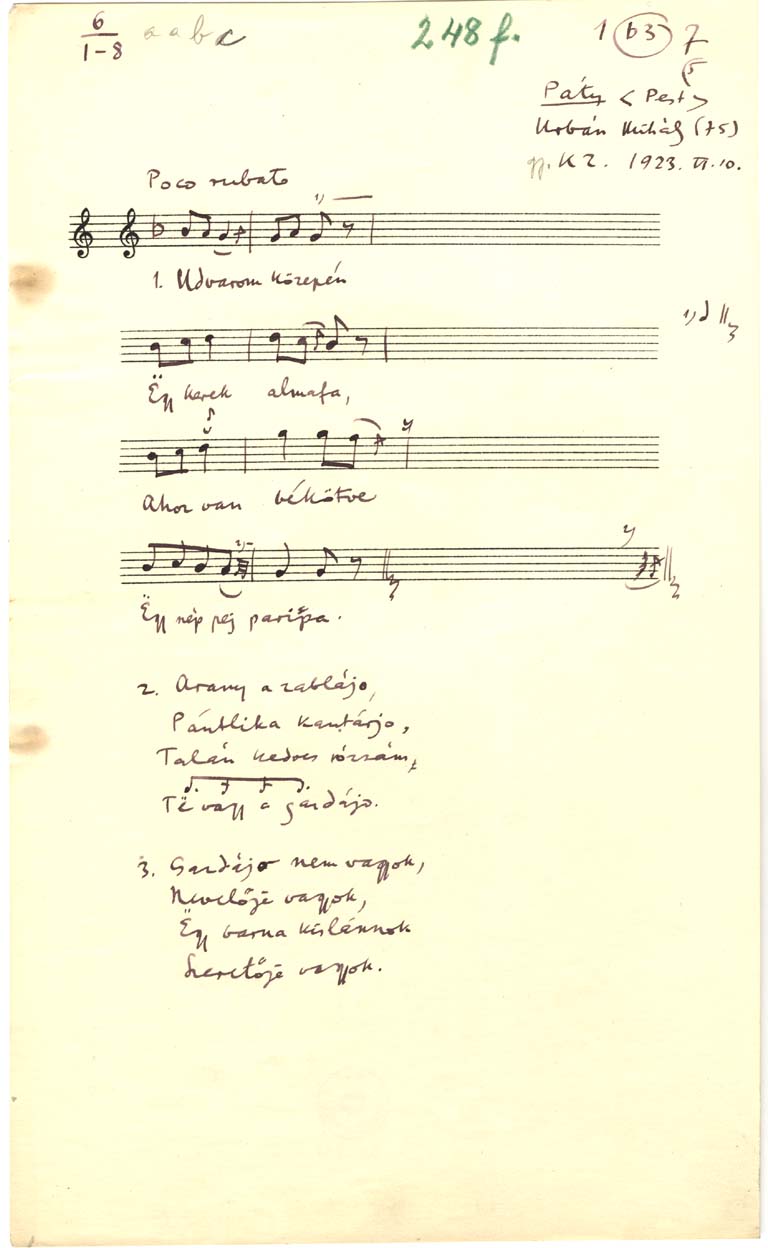 6
1-8
a a b c
248 f.
1 b3 7
(5
Páty <Pest>
Urbán Mihály (75)
gy. K Z. 1923. VI. 10.
Poco rubato
1)
1. Udvarom közepén
1)
Ëgy kerek almafa,
Ahoz van békötve
2)
2)
Ëgy nép pej paripa.
2. Arany a zablájo,
Pántlika kantárjo,
Talán kedves rózsám,
Të vagy a gazdájo.
3. Gazdájo nem vagyok,
Nevelőjë vagyok,
Ëgy barna kislánnok
Szeretőjë vagyok.